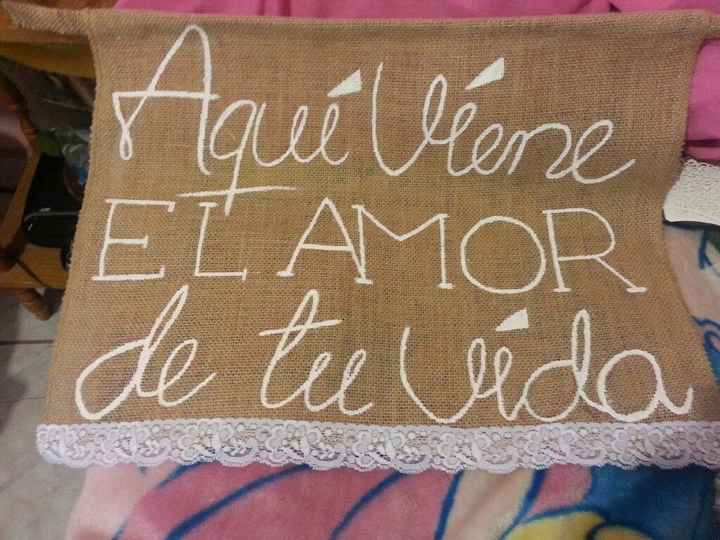 Aquí Viene
EL AMOR
de tu Vida